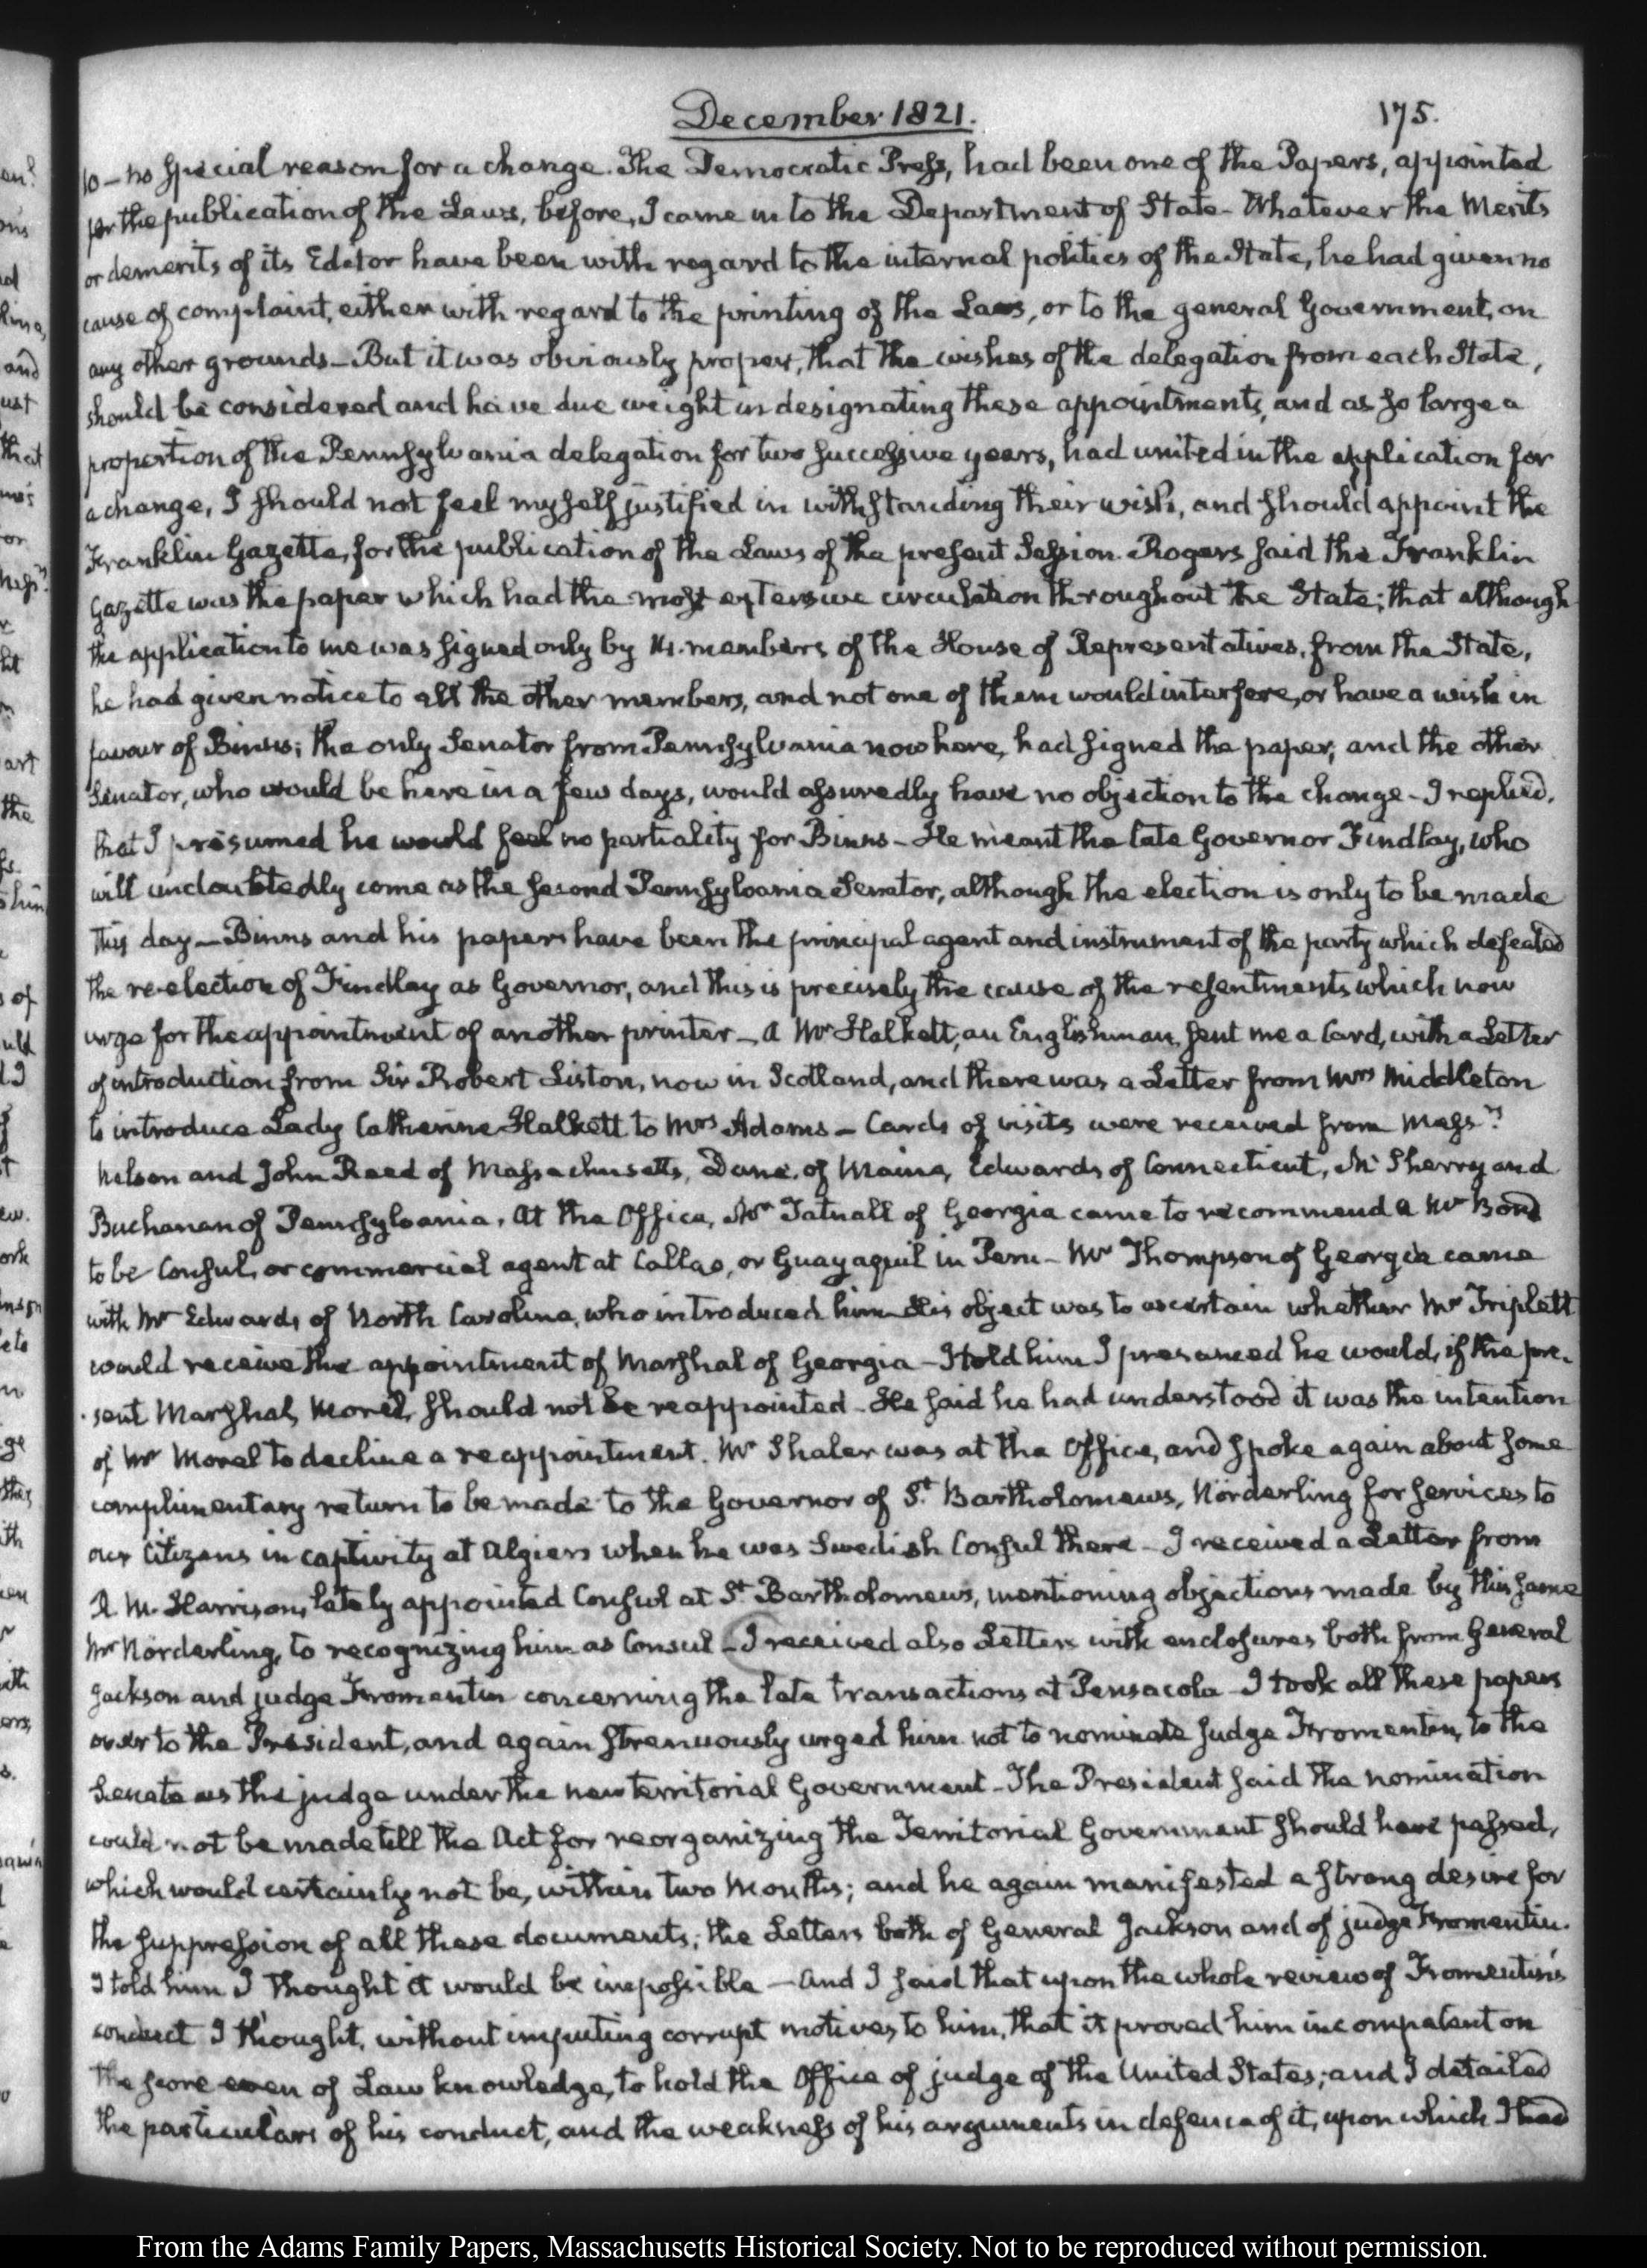 December 1821.
175.
so no special reason for a change. The Democratic Press, had been one of the Papers, appointed
for the publication of the Laws, before, I came in to the Department of State. Whatever the Merits
or demerits of its Editor have been with regard to the internal politics of the State, he had given no
cause of complaint, either with regard to the printing of the Laws, or to the general Government, on
any other grounds — But it was obviously proper, that the wishes of the delegation from each State,
should be considered and have due weight in designating these appointments, and as so large a
proportion of the Pennsylvania delegation for two successive years, had united in the application for
a change, I should not feel myself justified in withstanding their wish, and should appoint the
Franklin Gazette, for the publication of the Laws of the present Session. Rogers said the Franklin
Gazette was the paper which had the most extensive circulation throughout the State; that although
the application to me was signed only by 14. members of the House of Representatives, from the State,
he had given notice to all the other members, and not one of them would interfere, or have a wish in
favour of Binns; the only Senator from Pennsylvania now here, had signed the paper, and the other
Senator, who would be here in a few days, would assuredly have no objection to the change — I replied,
that I presumed he would feel no partiality for Binns — He meant the late Governor Findlay, who
will undoubtedly come as the second Pennsylvania Senator, although the election is only to be made
this day — Binns and his papers have been the principal agent and instrument of the party which defeated
the re-election of Findlay as Governor, and this is precisely the cause of the resentments which now
urge for the appointment of another printer — A Mr Halkett, an Englishman, sent me a Card, with a Letter
of introduction from Sir Robert Liston, now in Scotland, and there was a Letter from Mrs Middleton
to introduce Lady Catherine Halkett to Mrs Adams — Cards of visits were received from Messrs
Nelson and John Reed of Massachusetts, Dane of Maine, Edwards of Connecticut, McSherry and
Buchanan of Pennsylvania. At the Office, Mr Tatnall of Georgia came to recommend a Mr Bond
to be Consul, or commercial agent at Callao, or Guayaquil in Peru — Mr Thompson of Georgia came
with Mr Edwards of North Carolina, who introduced him. His object was to ascertain whether Mr Triplett
would receive the appointment of Marshal of Georgia — I told him I presumed he would, if the pre-
sent Marshal, Morel, should not be reappointed — He said he had understood it was the intention
of Mr Morel to decline a reappointment. Mr Shaler was at the Office, and spoke again about some
complimentary return to be made to the Governor of St. Bartholomews, Nörderling for services to
our Citizens in captivity at Algiers when he was Swedish Consul there — I received a Letter from
R. M. Harrison, lately appointed Consul at St. Bartholomews, mentioning objections made by this same
Mr Nörderling, to recognizing him as Consul — I received also Letters with enclosures both from General
Jackson and judge Fromentin concerning the late transactions at Pensacola — I took all these papers
over to the President, and again strenuously urged him not to nominate Judge Fromentin, to the
Senate as the judge under the new territorial Government — The President said the nomination
could not be made till the Act for reorganizing the Territorial Government should have passed,
which would certainly not be, within two Months; and he again manifested a strong desire for
the suppression of all these documents; the Letters both of General Jackson and of judge Fromentin.
I told him I thought it would be impossible — And I said that upon the whole review of Fromentin's
conduct I thought, without imputing corrupt motives to him, that it proved him incompetent on
the score even of Law knowledge, to hold the Office of judge of the United States; and I detailed
the particulars of his conduct, and the weakness of his arguments in defence of it, upon which I had
From the Adams Family Papers, Massachusetts Historical Society. Not to be reproduced without permission.